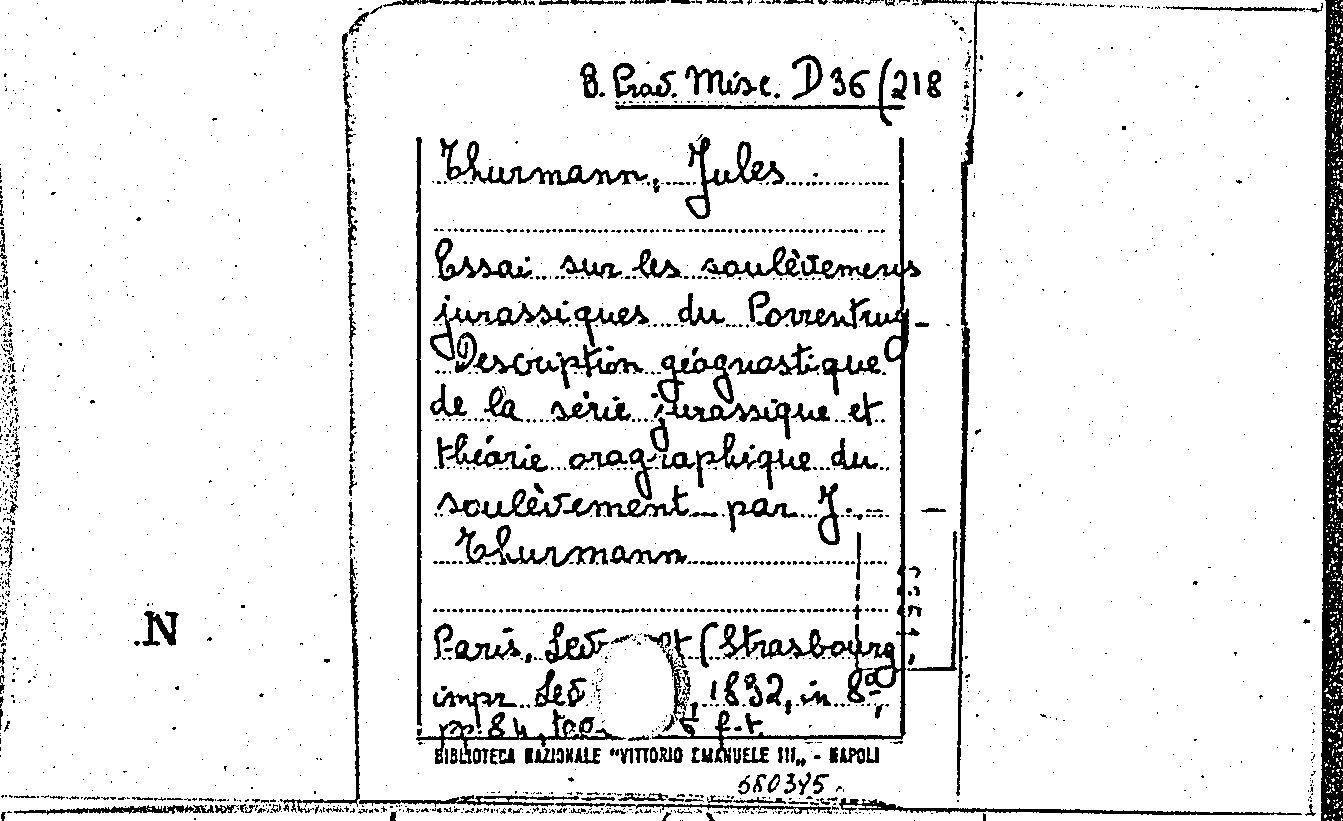 B. Prov. Misc. D 36 (218
Thurmann, Jules
Essai sur les soulèvemens
jurassiques du Porrentruy -
Description géognostique
de la série jurassique et
théorie orographique du
soulèvement par J. -
Thurmann
N
Paris, (Strasbourg,
impr. 1832, in 8º,
pp. 84, f. t.
BIBLIOTECA NAZIONALE "VITTORIO EMANUELE III„ - NAPOLI
680375